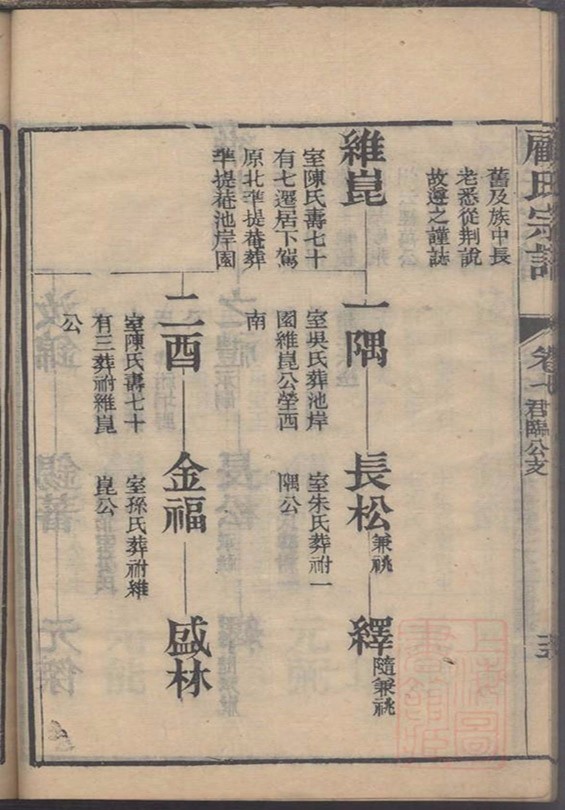 顧氏宗譜
卷七
君臨公支
舊及族中長
老悉從荆說
故遵之謹誌
維崑
室陳氏壽七十
有七遷居下駕
原北準提菴葬
準提菴池岸園
一隅
室吳氏葬池岸
園維崑公塋西
南
長松
兼祧
室朱氏葬祔一
隅公
繹
隨兼祧
二酉
室陳氏壽七十
有三葬祔維崑
公
金福
室孫氏葬祔維
崑公
盛林